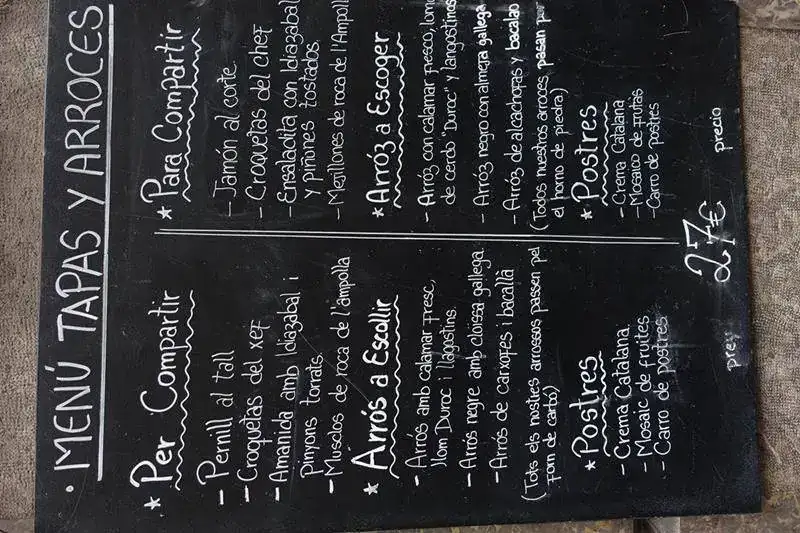 · MENÚ TAPAS Y ARROCES
* Per Compartir
- Pernill al tall
- Croquetas del xef
- Amanida amb Idiazabal i
pinyons torrats.
- Musclos de roca de l'ampolla
* Arrós a Escollir
- Arrós amb calamar fresc,
llom Duroc i llagostins.
- Arrós negre amb cloissa gallega
- Arrós de carxofes i bacallà
(Tots els nostres arrossos passen pel
forn de carbó)
* Postres
- Crema Catalana
- Mosaic de fruites
- Carro de postres
* Para Compartir
- Jamón al corte.
- Croquetas del chef
- Ensaladita con Idiagabal
y piñones tostados.
- Mejillones de roca de l'Ampoll
* Arróz a Escoger
- Arróz con calamar fresco, lomo
de cerdo "Duroc" y langostinos
- Arróz negro con almeja gallega
- Arróz de alcachofas y bacalao
(Todos nuestros arroces pasan por
el horno de piedra)
* Postres
- Crema Catalana
- Mosaico de frutas
- Carro de postres
preu 27€ precio